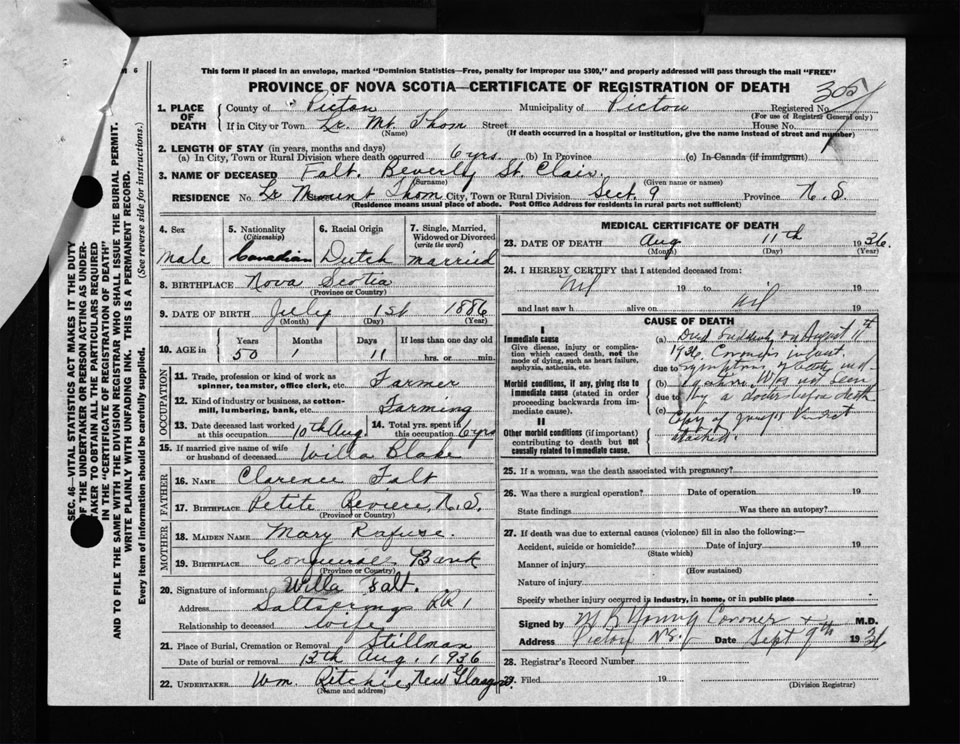 This form if placed in an envelope, marked "Dominion Statistics—Free, penalty for improper use $300," and properly addressed will pass through the mail "FREE"
PROVINCE OF NOVA SCOTIA—CERTIFICATE OF REGISTRATION OF DEATH
305
1. PLACE OF DEATH County of Pictou Municipality of Pictou Registered No.
(For use of Registrar General only)
If in City or Town Lr. Mt. Thom Street House No.
(Name) (If death occurred in a hospital or institution, give the name instead of street and number)
2. LENGTH OF STAY (in years, months and days)
(a) In City, Town or Rural Division where death occurred 6 yrs. (b) In Province (c) In Canada (if immigrant)
3. NAME OF DECEASED Falt. Beverly St. Clair.
(Surname) (Given name or names)
RESIDENCE No. Lr Mount Thom City, Town or Rural Division Sect. 9 Province N.S.
(Residence means usual place of abode. Post Office Address for residents in rural parts not sufficient)
4. Sex 5. Nationality (Citizenship) 6. Racial Origin 7. Single, Married, Widowed or Divorced (write the word)
Male Canadian Dutch married
8. BIRTHPLACE Nova Scotia
(Province or Country)
9. DATE OF BIRTH July 1st 1886
(Month) (Day) (Year)
10. AGE in Years Months Days If less than one day old
50 1 11 hrs. or min.
OCCUPATION
11. Trade, profession or kind of work as spinner, teamster, office clerk, etc. Farmer
12. Kind of industry or business, as cotton-mill, lumbering, bank, etc. Farming
13. Date deceased last worked at this occupation 10th Aug. 14. Total yrs. spent in this occupation 6 yrs
15. If married give name of wife or husband of deceased Willa Blake
FATHER
16. NAME Clarence Falt
17. BIRTHPLACE Petite Reviere, N.S.
(Province or Country)
MOTHER
18. MAIDEN NAME Mary Rafuse.
19. BIRTHPLACE Conquerall Bank
(Province or Country)
20. Signature of informant Willa Falt.
Address Saltsprings RR 1
Relationship to deceased wife
21. Place of Burial, Cremation or Removal Stillman
Date of burial or removal 13th Aug. 1936
22. UNDERTAKER Wm. Ritchie, New Glasgow.
(Name and address)
MEDICAL CERTIFICATE OF DEATH
23. DATE OF DEATH Aug 11th 1936
(Month) (Day) (Year)
24. I HEREBY CERTIFY that I attended deceased from:
Nil 19 to 19
and last saw h alive on nil 19
CAUSE OF DEATH
I
Immediate cause
Give disease, injury or complication which caused death, not the mode of dying, such as heart failure, asphyxia, asthenia, etc.
Morbid conditions, if any, giving rise to immediate cause (stated in order proceeding backwards from immediate cause).
II
Other morbid conditions (if important) contributing to death but not causally related to immediate cause.
(a) Died suddenly on August 11th
1936. Coroners inquest.
due to symptoms of death ind-
(b) Was not seen
due to by a doctor before death
(c) Copy of Jurys Verdict
attached.
25. If a woman, was the death associated with pregnancy?
26. Was there a surgical operation? Date of operation 19
State findings Was there an autopsy?
27. If death was due to external causes (violence) fill in also the following:—
Accident, suicide or homicide? Date of injury 19
(State which)
Manner of injury
(How sustained)
Nature of injury
Specify whether injury occurred in industry, in home, or in public place
Signed by M B Young Coroner M.D.
Address Pictou N.S. Date Sept 9th 1936
28. Registrar's Record Number
29. Filed 19
(Division Registrar)
SEC. 46—VITAL STATISTICS ACT MAKES IT THE DUTY
OF THE UNDERTAKER OR PERSON ACTING AS UNDER-
TAKER TO OBTAIN ALL THE PARTICULARS REQUIRED
IN THE "CERTIFICATE OF REGISTRATION OF DEATH"
AND TO FILE THE SAME WITH THE DIVISION REGISTRAR WHO SHALL ISSUE THE BURIAL PERMIT.
WRITE PLAINLY WITH UNFADING INK. THIS IS A PERMANENT RECORD.
Every item of information should be carefully supplied. (See reverse side for instructions.)